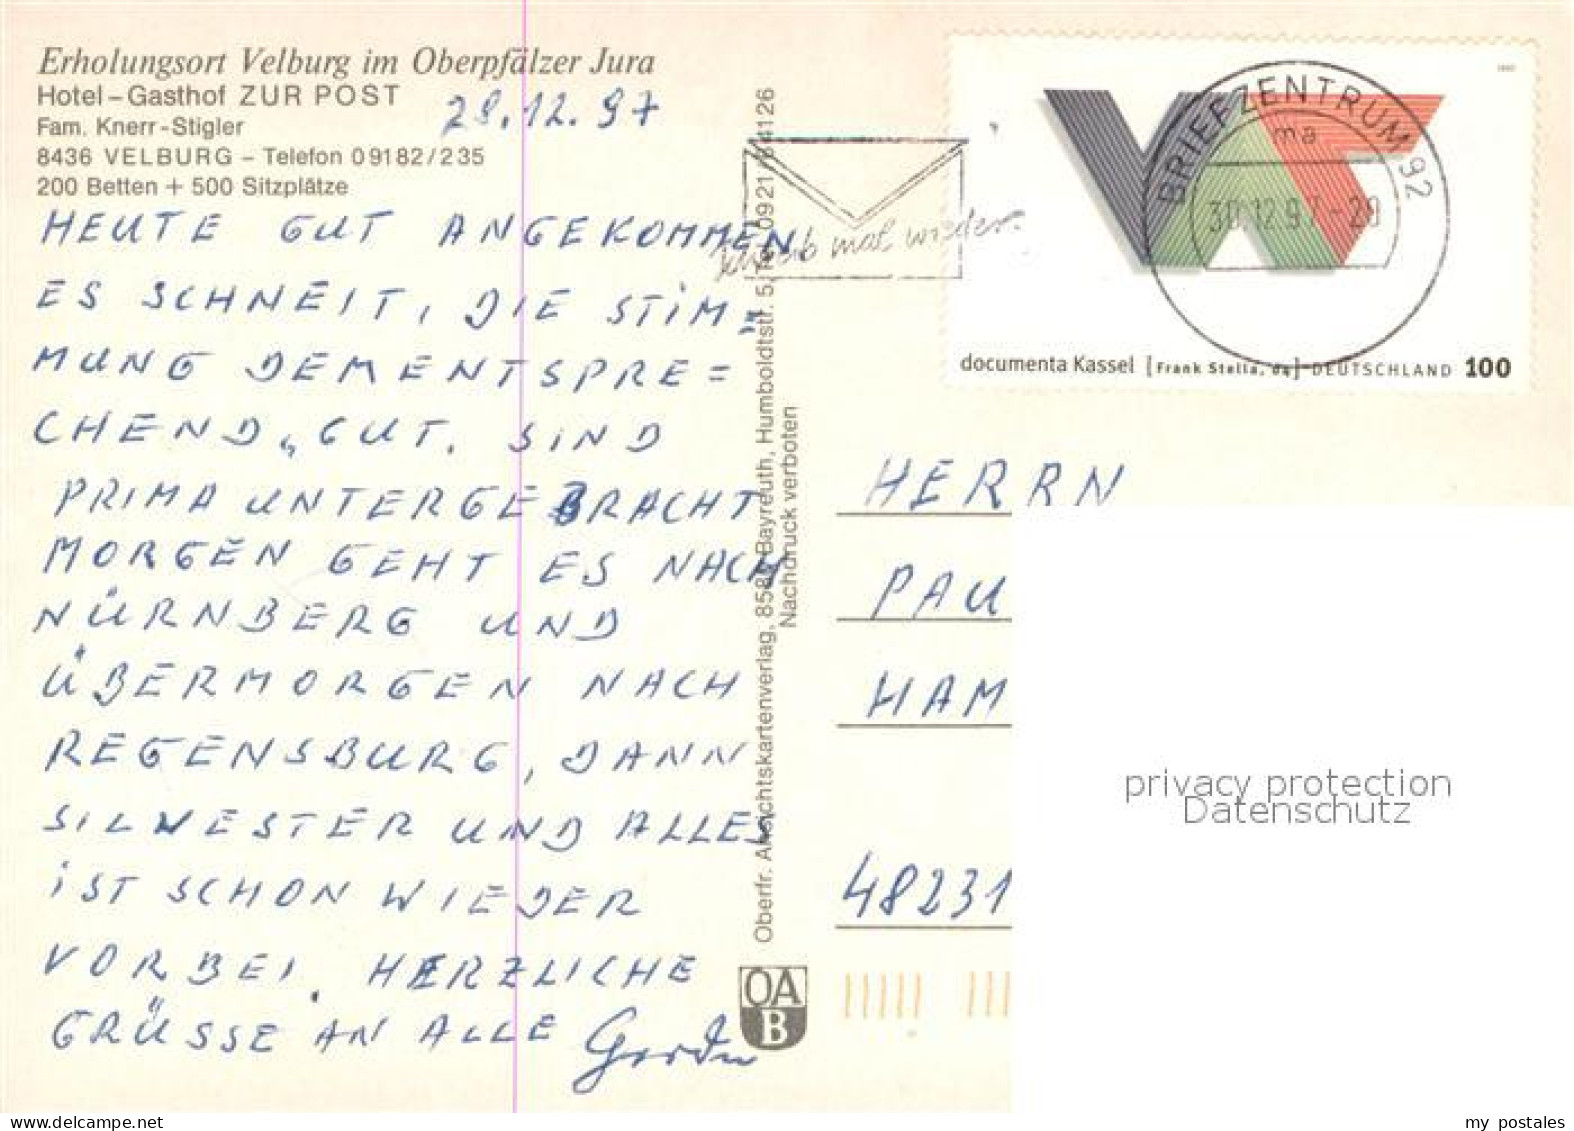 Erholungsort Velburg im Oberpfälzer Jura
Hotel-Gasthof ZUR POST
Fam. Knerr-Stigler
8436 VELBURG – Telefon 09182/235
200 Betten + 500 Sitzplätze
29.12.97
HEUTE GUT ANGEKOMMEN,
ES SCHNEIT, DIE STIM=
MUNG DEMENTSPRE=
CHEND, GUT. SIND
PRIMA UNTERGEBRACHT
MORGEN GEHT ES NACH
NÜRNBERG UND
ÜBERMORGEN NACH
REGENSBURG, DANN
SILVESTER UND ALLES
IST SCHON WIEDER
VORBEI. HERZLICHE
GRÜSSE AN ALLE
Oberfr. Ansichtskartenverlag, 8580 Bayreuth, Humboldtstr. 5, Tel. 0921/64126
Nachdruck verboten
OA
B
mal wieder.
BRIEFZENTRUM 92
ma
30.12.97-20
documenta Kassel [Frank Stella, d4] DEUTSCHLAND 100
HERRN
PAU
HAM
48231
privacy protection
Datenschutz
www.delcampe.net
my_postales